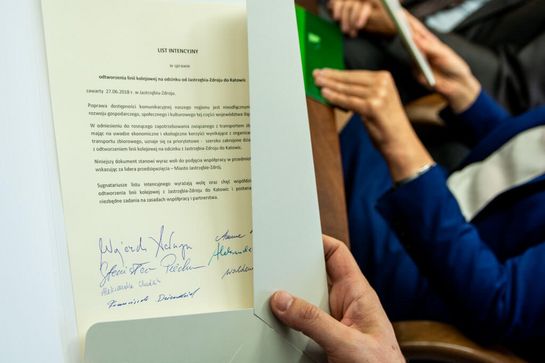 LIST INTENCYJNY
w sprawie
odtworzenia linii kolejowej na odcinku od Jastrzębia-Zdroju do Katowic
zawarty 27.06.2018 r. w Jastrzębiu-Zdroju.
Poprawa dostępności komunikacyjnej naszego regionu jest nieodłączny
rozwoju gospodarczego, społecznego i kulturowego tej części województwa
W odniesieniu do rosnącego zapotrzebowania związanego z transportem
mając na uwadze ekonomiczne i ekologiczne korzyści wynikające z organiza
transportu zbiorowego, uznaje się za priorytetowe – szeroko zakrojone
z odtworzeniem linii kolejowej na odcinku Jastrzębie-Zdrój do Katowic.
Niniejszy dokument stanowi wyraz woli do podjęcia współpracy w przedmio
wskazując za lidera przedsięwzięcia – Miasto Jastrzębie-Zdrój.
Sygnatariusze listu intencyjnego wyrażają wolę oraz chęć współdzi
odtworzenia linii kolejowej z Jastrzębia-Zdroju do Katowic i postana
niezbędne zadania na zasadach współpracy i partnerstwa.
Stanisław
Aleksandra